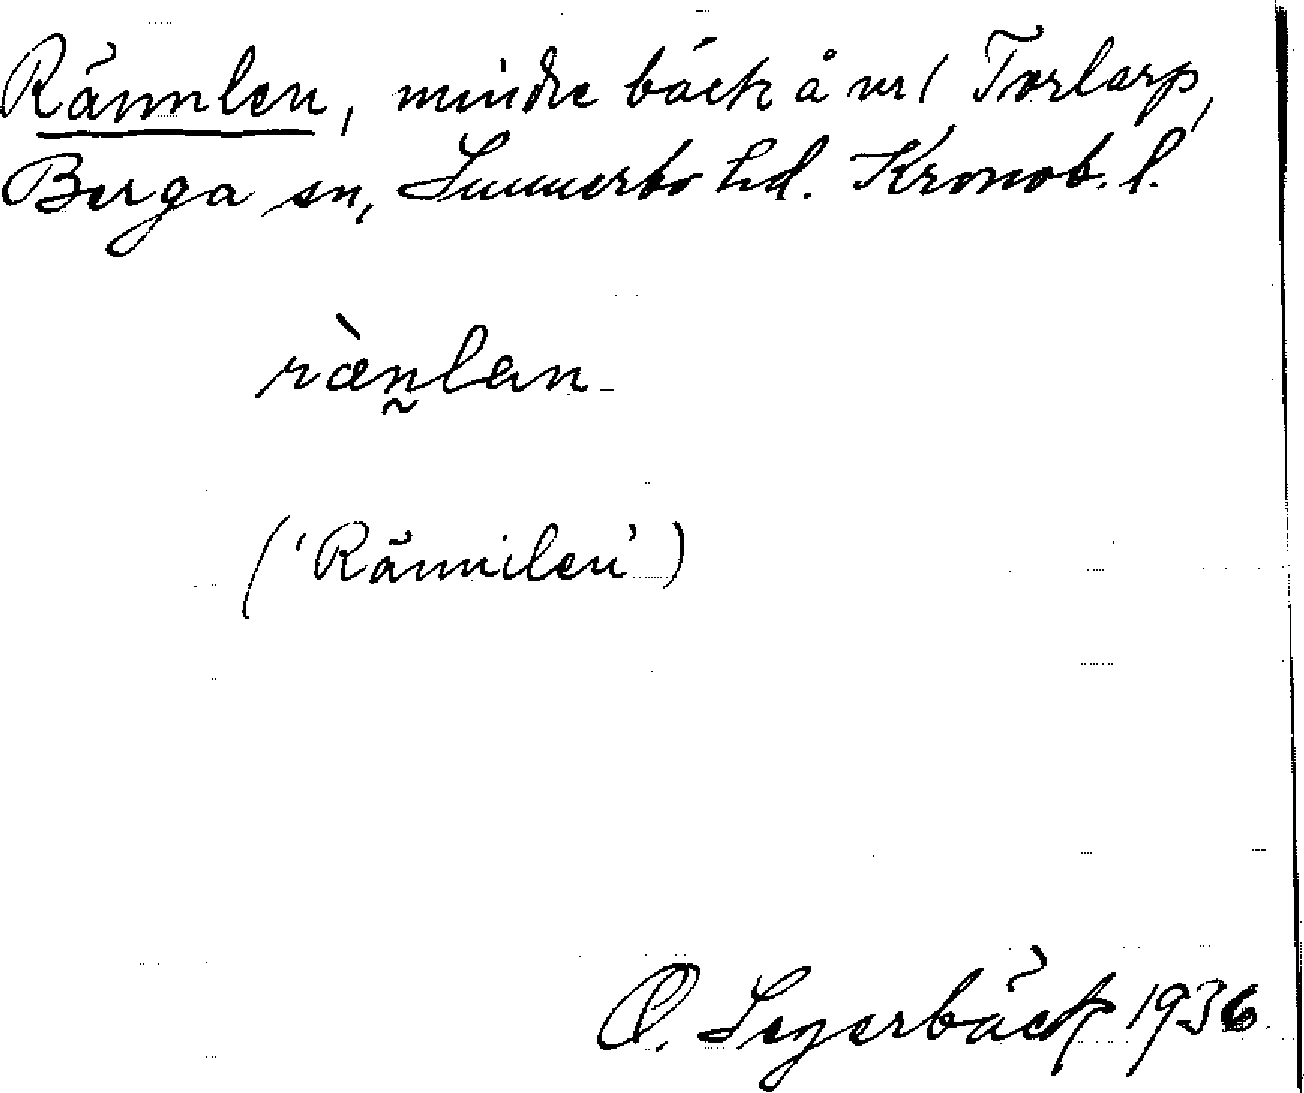 Rännlen, mindre bäck å nr 1 Torlarp,
Berga sn, Sunnerbo hd. Kronob. l.
ræ̀n̰lan
('Rännilen')
O. Segerbäck 1936